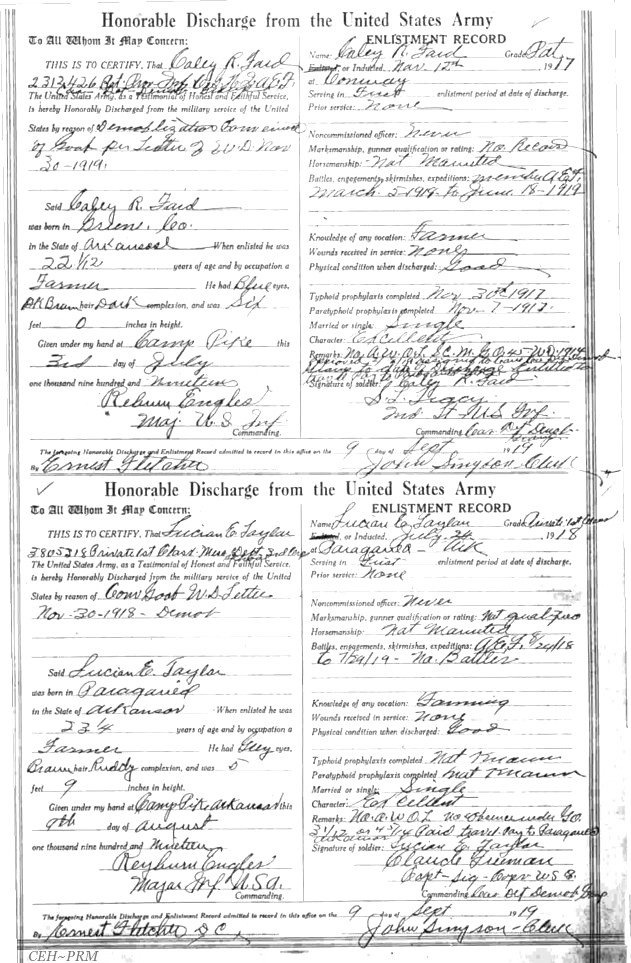 Honorable Discharge from the United States Army
To All Whom It May Concern:
THIS IS TO CERTIFY, That Caley R. Faid
2312426 Pvt.
The United States Army, as a Testimonial of Honest and Faithful Service,
is hereby Honorably Discharged from the military service of the United
States by reason of Demoblization Convience
of Govt per Letter of W.D. Nov
30-1919.
Said Caley R. Faid
was born in Green, Co.
in the State of Arkansas When enlisted he was
22 1/12 years of age and by occupation a
Farmer He had Blue eyes.
DK Brown hair, Dark complexion, and was Six
feet 0 inches in height.
Given under my hand at Camp Pike this
3rd day of July
one thousand nine hundred and Nineteen
Reburn Engles
Maj. U.S. Inf.
Commanding.
ENLISTMENT RECORD
Name: Caley R. Faid Grade: Pvt
Enlisted or Inducted: Nov. 12th 1917
at Conway
Serving in First enlistment period at date of discharge.
Prior service: None
Noncommissioned officer: Never
Marksmanship, gunner qualification or rating: No Record
Horsemanship: Not Mounted
Battles, engagements, skirmishes, expeditions: member A.E.F.
March. 5-1919. to June. 18-1919
Knowledge of any vocation: Farmer
Wounds received in service: None
Physical condition when discharged: Good
Typhoid prophylaxis completed Nov. 30th 1917
Paratyphoid prophylaxis completed Nov-7-1917.
Married or single: Single
Character: Excellent
Remarks: No. A.W.O.L. S.C.M. G.O. 45-W.D. 1914
Signature of soldier: Caley R. Faid
S.L. Tracy
2nd Lt. U.S. Inf.
Commanding Cas. Det Demob.
Group
The foregoing Honorable Discharge and Enlistment Record admitted to record in this office on the 9 day of Sept 1919
By Ernest Fletcher John Simpson-Clerk
Honorable Discharge from the United States Army
To All Whom It May Concern:
THIS IS TO CERTIFY, That Lucian E. Taylor
3805218 Private 1st Class-
The United States Army, as a Testimonial of Honest and Faithful Service,
is hereby Honorably Discharged from the military service of the United
States by reason of Conv Govt W.D. Letter
Nov-30-1918- Demob
Said Lucian E. Taylor
was born in Paragauled
in the State of Arkansas When enlisted he was
23 1/4 years of age and by occupation a
Farmer He had Grey eyes.
Brown hair, Ruddy complexion, and was 5
feet 9 inches in height.
Given under my hand at Camp Pike Arkansas this
9th day of August
one thousand nine hundred and Nineteen
Reyburn Engles
Major Inf U.S.A.
ENLISTMENT RECORD
Name: Lucian E. Taylor Grade: Private 1st Class
Enlisted or Inducted: July-24 1918
at Paragauled Ark
Serving in First enlistment period at date of discharge.
Prior service: None
Noncommissioned officer: Never
Marksmanship, gunner qualification or rating: Not
Horsemanship: Not Mounted
Battles, engagements, skirmishes, expeditions: A.E.F. 8/24/18
to 7/29/19- No. Battles
Knowledge of any vocation: Farming
Wounds received in service: None
Physical condition when discharged: Good
Typhoid prophylaxis completed Not Known
Paratyphoid prophylaxis completed Not Known
Married or single: Single
Character: Excellent
Remarks: No. A.W.O.L no absence under G.O.
31/12 or 45/14 Paid travel pay to Paragauled
Arkansas
Signature of soldier: Lucian E. Taylor
Claude Freeman
Capt-Sig-Corps U.S.A.
Commanding Cas. Det Demob Group
The foregoing Honorable Discharge and Enlistment Record admitted to record in this office on the 9 day of Sept 1919
By Ernest Fletcher D.C. John Simpson-Clerk
CEH~PRM